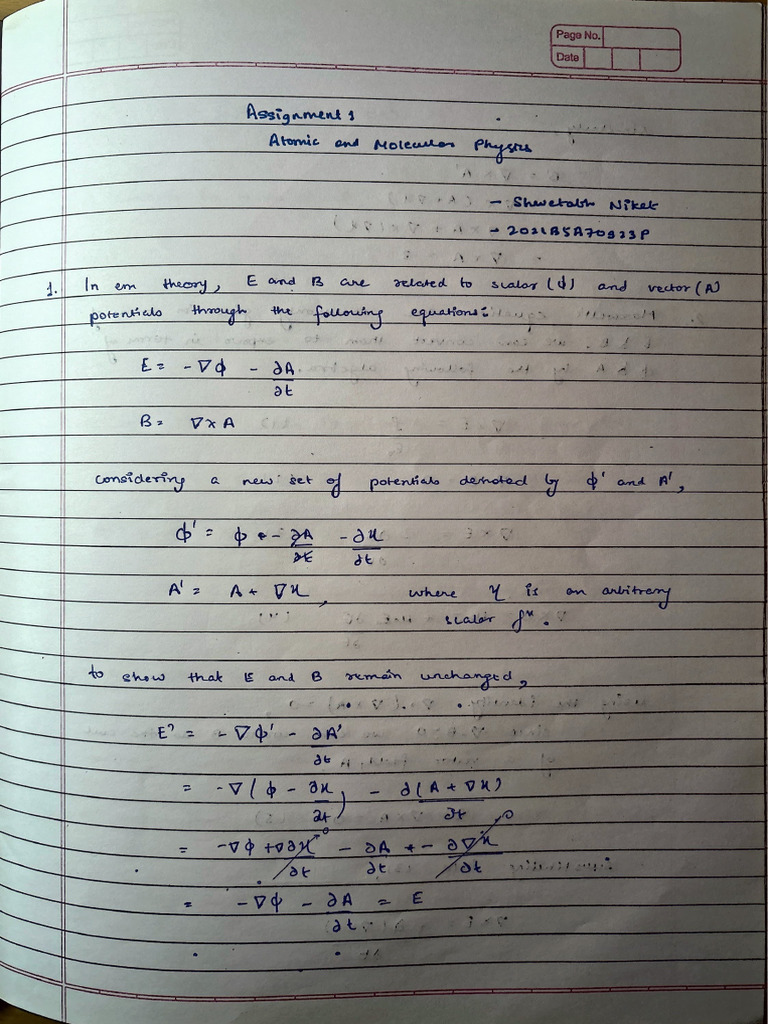 Page No.
Date
Assignment 1
Atomic and Molecular Physics
- Shwetabh Niket
- 2021B5A70923P
1. In em theory, E and B are related to scalar (ϕ) and vector (A)
potentials through the following equations:
E = -∇ϕ - ∂A/∂t
B = ∇×A
considering a new set of potentials denoted by ϕ' and A',
ϕ' = ϕ - ∂χ/∂t
A' = A + ∇χ, where χ is an arbitrary
scalar fⁿ.
to show that E and B remain unchanged,
E' = -∇ϕ' - ∂A'/∂t
= -∇(ϕ - ∂χ/∂t) - ∂(A + ∇χ)/∂t
= -∇ϕ + ∇∂χ/∂t - ∂A/∂t - ∂∇χ/∂t
= -∇ϕ - ∂A/∂t = E